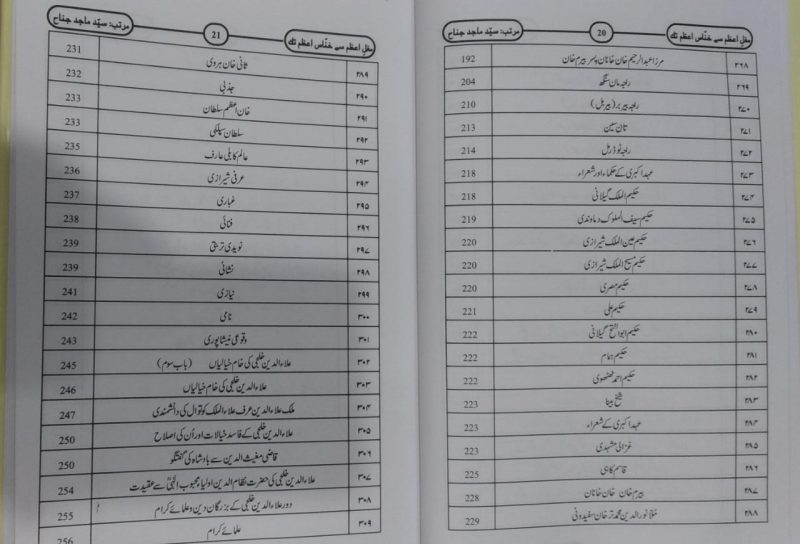 مغلِ اعظم سے خنّاسِ اعظم تک 20 مرتب: سیّد ماجد جناح
۲۶۸ مرزا عبدالرحیم خان خاناں پسر بیرم خان 192
۲۶۹ راجہ مان سنگھ 204
۲۷۰ راجہ بیربر (بیربل) 210
۲۷۱ تان سین 213
۲۷۲ راجہ ٹوڈرمل 214
۲۷۳ عہد اکبری کے حکماء اور شعراء 218
۲۷۴ حکیم الملک گیلانی 218
۲۷۵ حکیم سیف الملوک دماوندی 219
۲۷۶ حکیم عین الملک شیرازی 220
۲۷۷ حکیم مسیح الملک شیرازی 220
۲۷۸ حکیم مصری 220
۲۷۹ حکیم علی 221
۲۸۰ حکیم ابوالفتح گیلانی 222
۲۸۱ حکیم ہمام 222
۲۸۲ حکیم احمد ٹھٹھوی 222
۲۸۳ شیخ بینا 223
۲۸۴ عہد اکبری کے شعراء 223
۲۸۵ غزالی مشہدی 223
۲۸۶ قاسم کاہی 225
۲۸۷ بیرم خان خان خاناں 228
۲۸۸ مُلّا نورالدین محمد ترخان سفیدونی 229
مغلِ اعظم سے خنّاسِ اعظم تک 21 مرتب: سیّد ماجد جناح
۲۸۹ ثانی خان ہروی 231
۲۹۰ جذبی 232
۲۹۱ خان اعظم سلطان 233
۲۹۲ سلطان سپلکی 233
۲۹۳ عالم کابلی عارف 235
۲۹۴ عرفی شیرازی 236
۲۹۵ غباری 237
۲۹۶ فنائی 238
۲۹۷ نویدی تربتی 239
۲۹۸ نشانی 239
۲۹۹ نیازی 241
۳۰۰ نامی 242
۳۰۱ وقوعی نیشاپوری 243
۳۰۲ علاءالدین خلجی کی خام خیالیاں (باب سوم) 245
۳۰۳ علاءالدین خلجی کی خام خیالیاں 246
۳۰۴ ملک علاءالدین عرف علاءالملک کوتوال کی دانشمندی 247
۳۰۵ علاءالدین خلجی کے فاسد خیالات اور اُن کی اصلاح 250
۳۰۶ قاضی مغیث الدین سے بادشاہ کی گفتگو 250
۳۰۷ علاءالدین خلجی کی حضرت نظام الدین اولیاء محبوب الٰہیؒ سے عقیدت 254
۳۰۸ دور علاءالدین خلجی کے بزرگان دین و علمائے کرام 255
۳۰۹ علمائے کرام 256